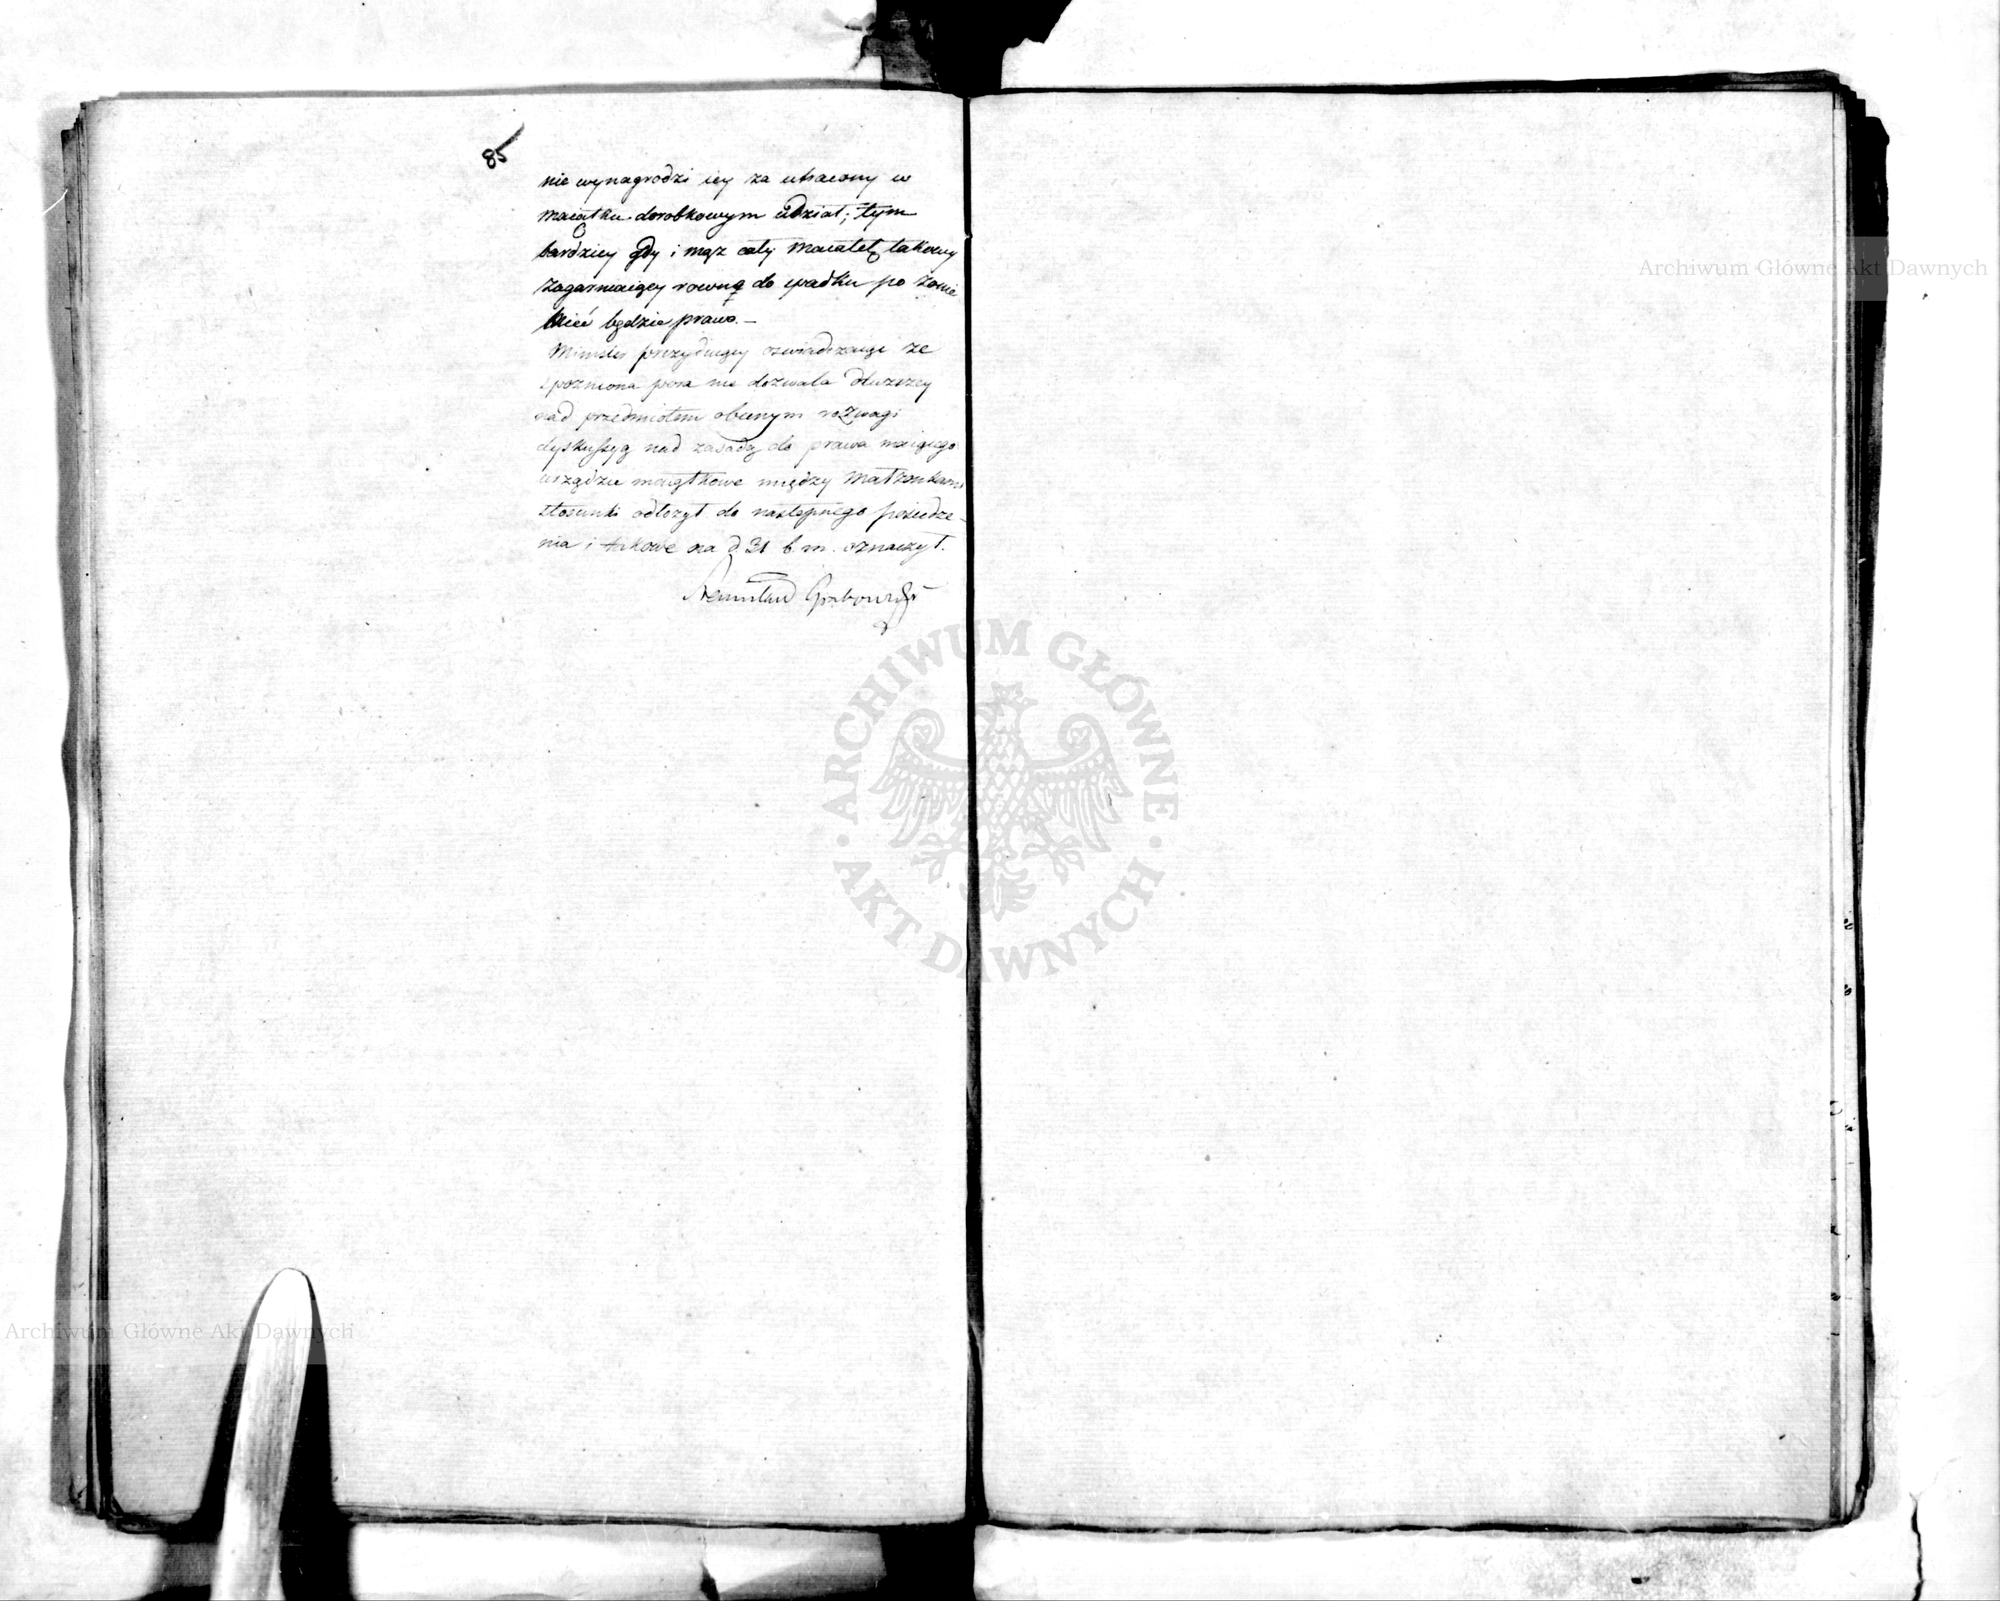 85
nie wynagrodzi iey za utracony w
maiątku dorobkowym udział; tym
bardziey gdy i mąż cały maiątek takowy
zagarniaiący rowne do spadku po żonie
mieć będzie prawo. —
Minister prezyduiący oświadczaiąc że
spozniona pora nie dozwala dłuższey
nad przedmiotem obecnym rozwagi
dyskussyą nad zasadą do prawa maiącego
urządzić maiątkowe między Małżonkami
stosunki odłożył do następnego posiedze-
nia i takowe na d 31 b. m. oznaczył.
Stanisław Grabowski
Archiwum Główne Akt Dawnych
ARCHIWUM GŁÓWNE · AKT DAWNYCH ·
Archiwum Główne Akt Dawnych